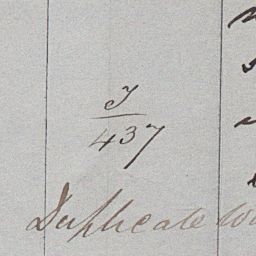 J
437
Duplicate